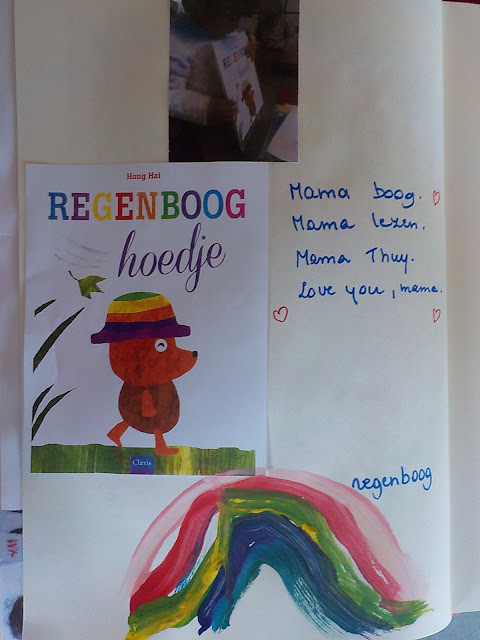 Hong Hai
REGENBOOG
hoedje
Clavis
Mama boog.
Mama lezen.
Mama Thuy.
Love you, mama.
regenboog